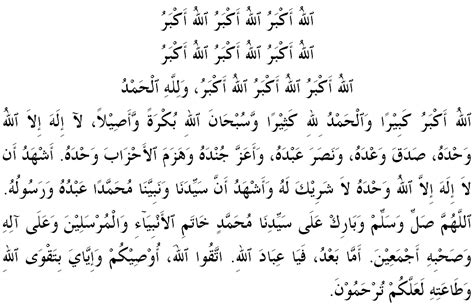 اَللهُ أَكْبَرُ اَللهُ أَكْبَرُ اَللهُ أَكْبَرُ
اَللهُ أَكْبَرُ اَللهُ أَكْبَرُ اَللهُ أَكْبَرُ
اَللهُ أَكْبَرُ اَللهُ أَكْبَرُ اَللهُ أَكْبَرُ، وَلِلَّهِ الْحَمْدُ
اَللهُ أَكْبَرُ كَبِيرًا وَالْحَمْدُ لِلهِ كَثِيرًا وَسُبْحَانَ اللهِ بُكْرَةً وَأَصِيْلاً، لَآ إِلَهَ إِلاَّ اللهُ
وَحْدَهُ، صَدَقَ وَعْدَهُ، وَنَصَرَ عَبْدَهُ، وَأَعَزَّ جُنْدَهُ وَهَزَمَ الأَحْزَابَ وَحْدَهُ. أَشْهَدُ أَن
لاَ إِلَهَ إِلاَّ اللهُ وَحْدَهُ لاَ شَرِيْكَ لَهُ وَأَشْهَدُ أَنَّ سَيِّدَنَا وَنَبِيَّنَا مُحَمَّدًا عَبْدُهُ وَرَسُولُهُ.
اَللَّهُمَّ صَلِّ وَسَلِّمْ وَبَارِكْ عَلَى سَيِّدِنَا مُحَمَّدٍ خَاتَمِ الأَنْبِيَآءِ وَالْمُرْسَلِيْنَ وَعَلَى آلِهِ
وَصَحْبِهِ أَجْمَعِيْنَ. أَمَّا بَعْدُ، فَيَا عِبَادَ اللهِ. اتَّقُوا اللهَ، أُوْصِيْكُمْ وَإِيَّايَ بِتَقْوَى اللهِ
وَطَاعَتِهِ لَعَلَّكُمْ تُرْحَمُوْنَ.